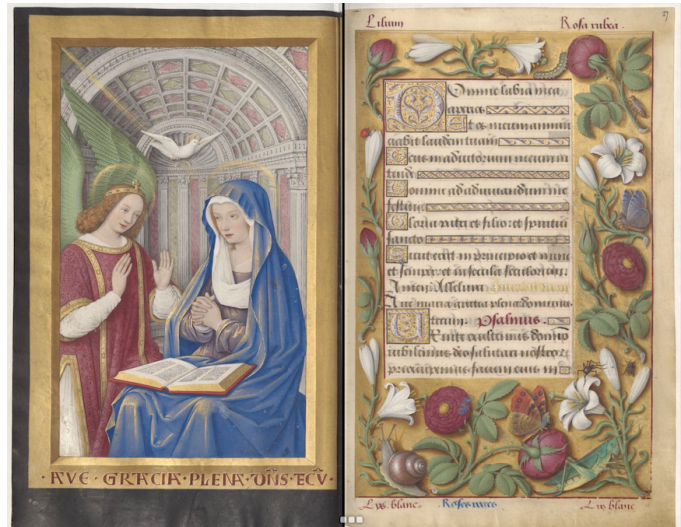 AVE · GRACIA · PLENA · DNS · TECV ·
Lilium
Rosa rubea.
27
Domine labia mea
aperies
Et os meum annun
ciabit laudem tuam
Deus in adiutorium meum in
tende
Domine ad adiuuandum me
festina
Gloria patri et filio et spiritui
sancto
Sicut erat in principio et nunc
et semper et in secula seculorum.
Amen. Alleluia
Aue maria gratia plena dominus
tecum. Psalmus.
Venite exultemus domino
iubilemus deo salutari nostro
preoccupemus faciem eius in
Lys blanc. Roses rouges Lys blanc